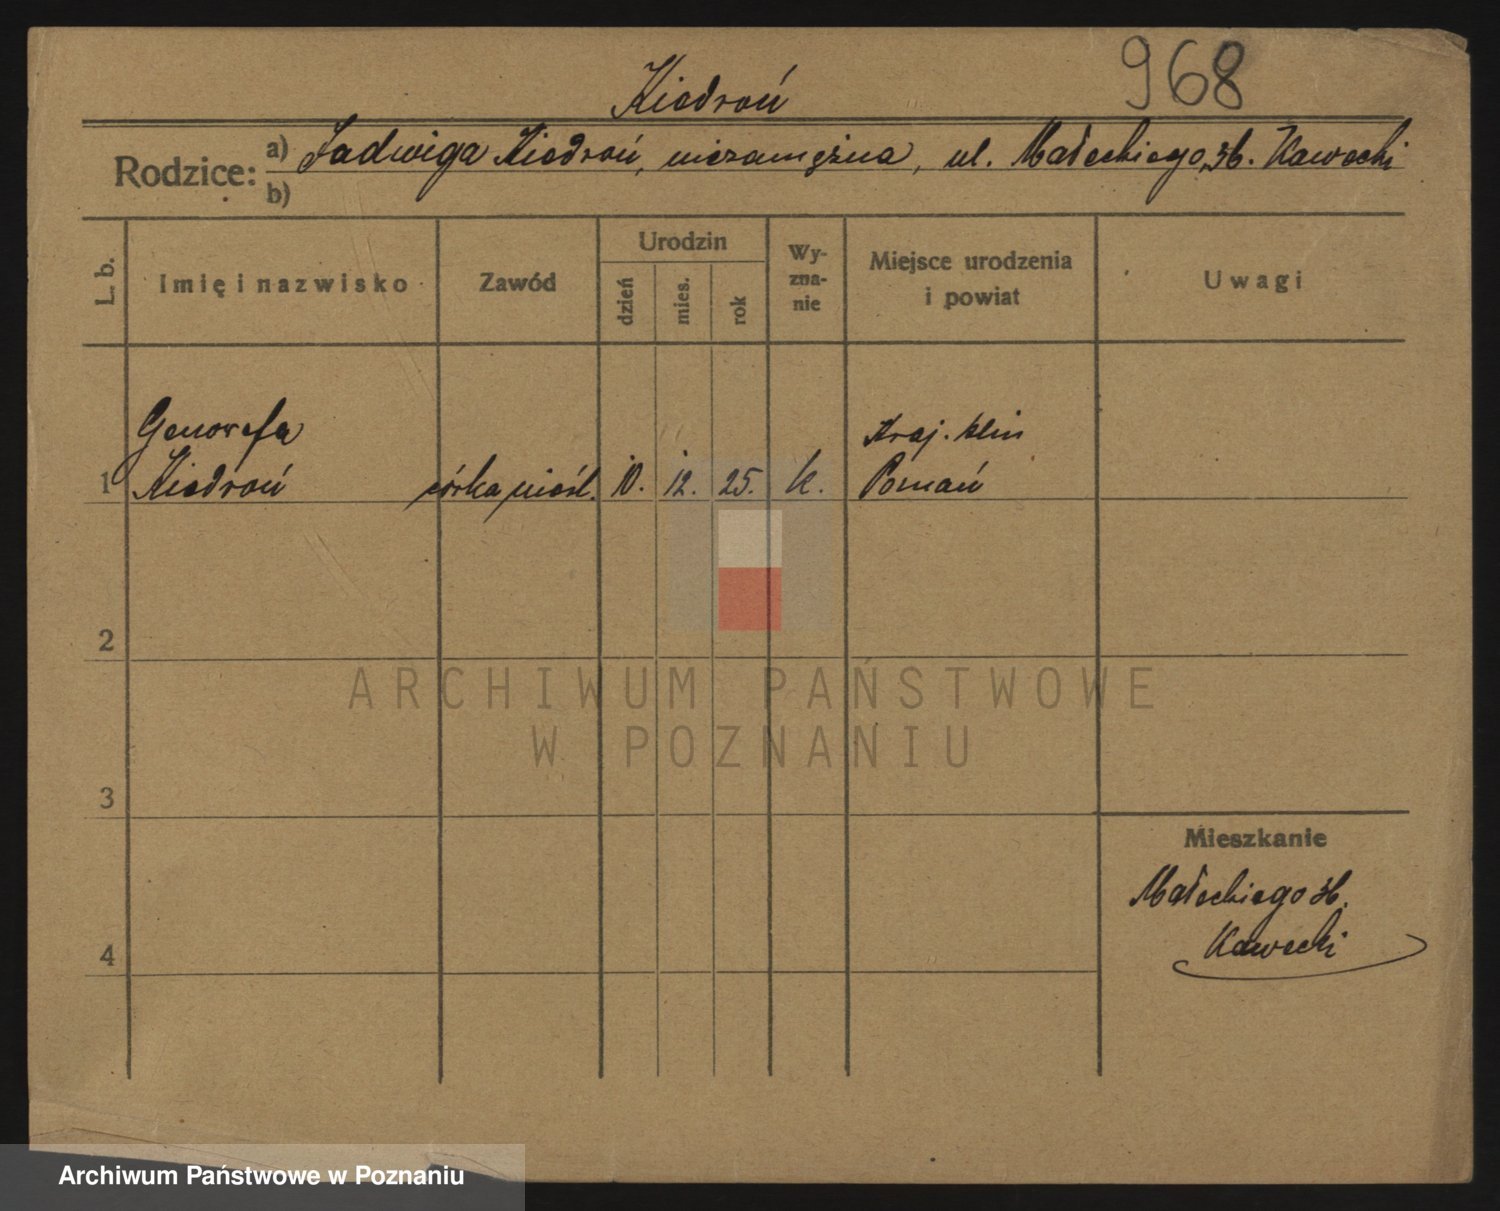 Kiedroń
968
Rodzice: a) Jadwiga Kiedroń, niezamężna, ul. Małeckiego, 36. Kawecki
b)
L. b.
Imię i nazwisko
Zawód
Urodzin
dzień
mies.
rok
Wy-
zna-
nie
Miejsce urodzenia
i powiat
Uwagi
Genowefa
Kraj. klin
1 Kiedroń córka nieśl. 10. 12. 25. k. Poznań
2
ARCHIWUM PAŃSTWOWE
W POZNANIU
3
Mieszkanie
Małeckiego 36.
Kawecki
4
Archiwum Państwowe w Poznaniu